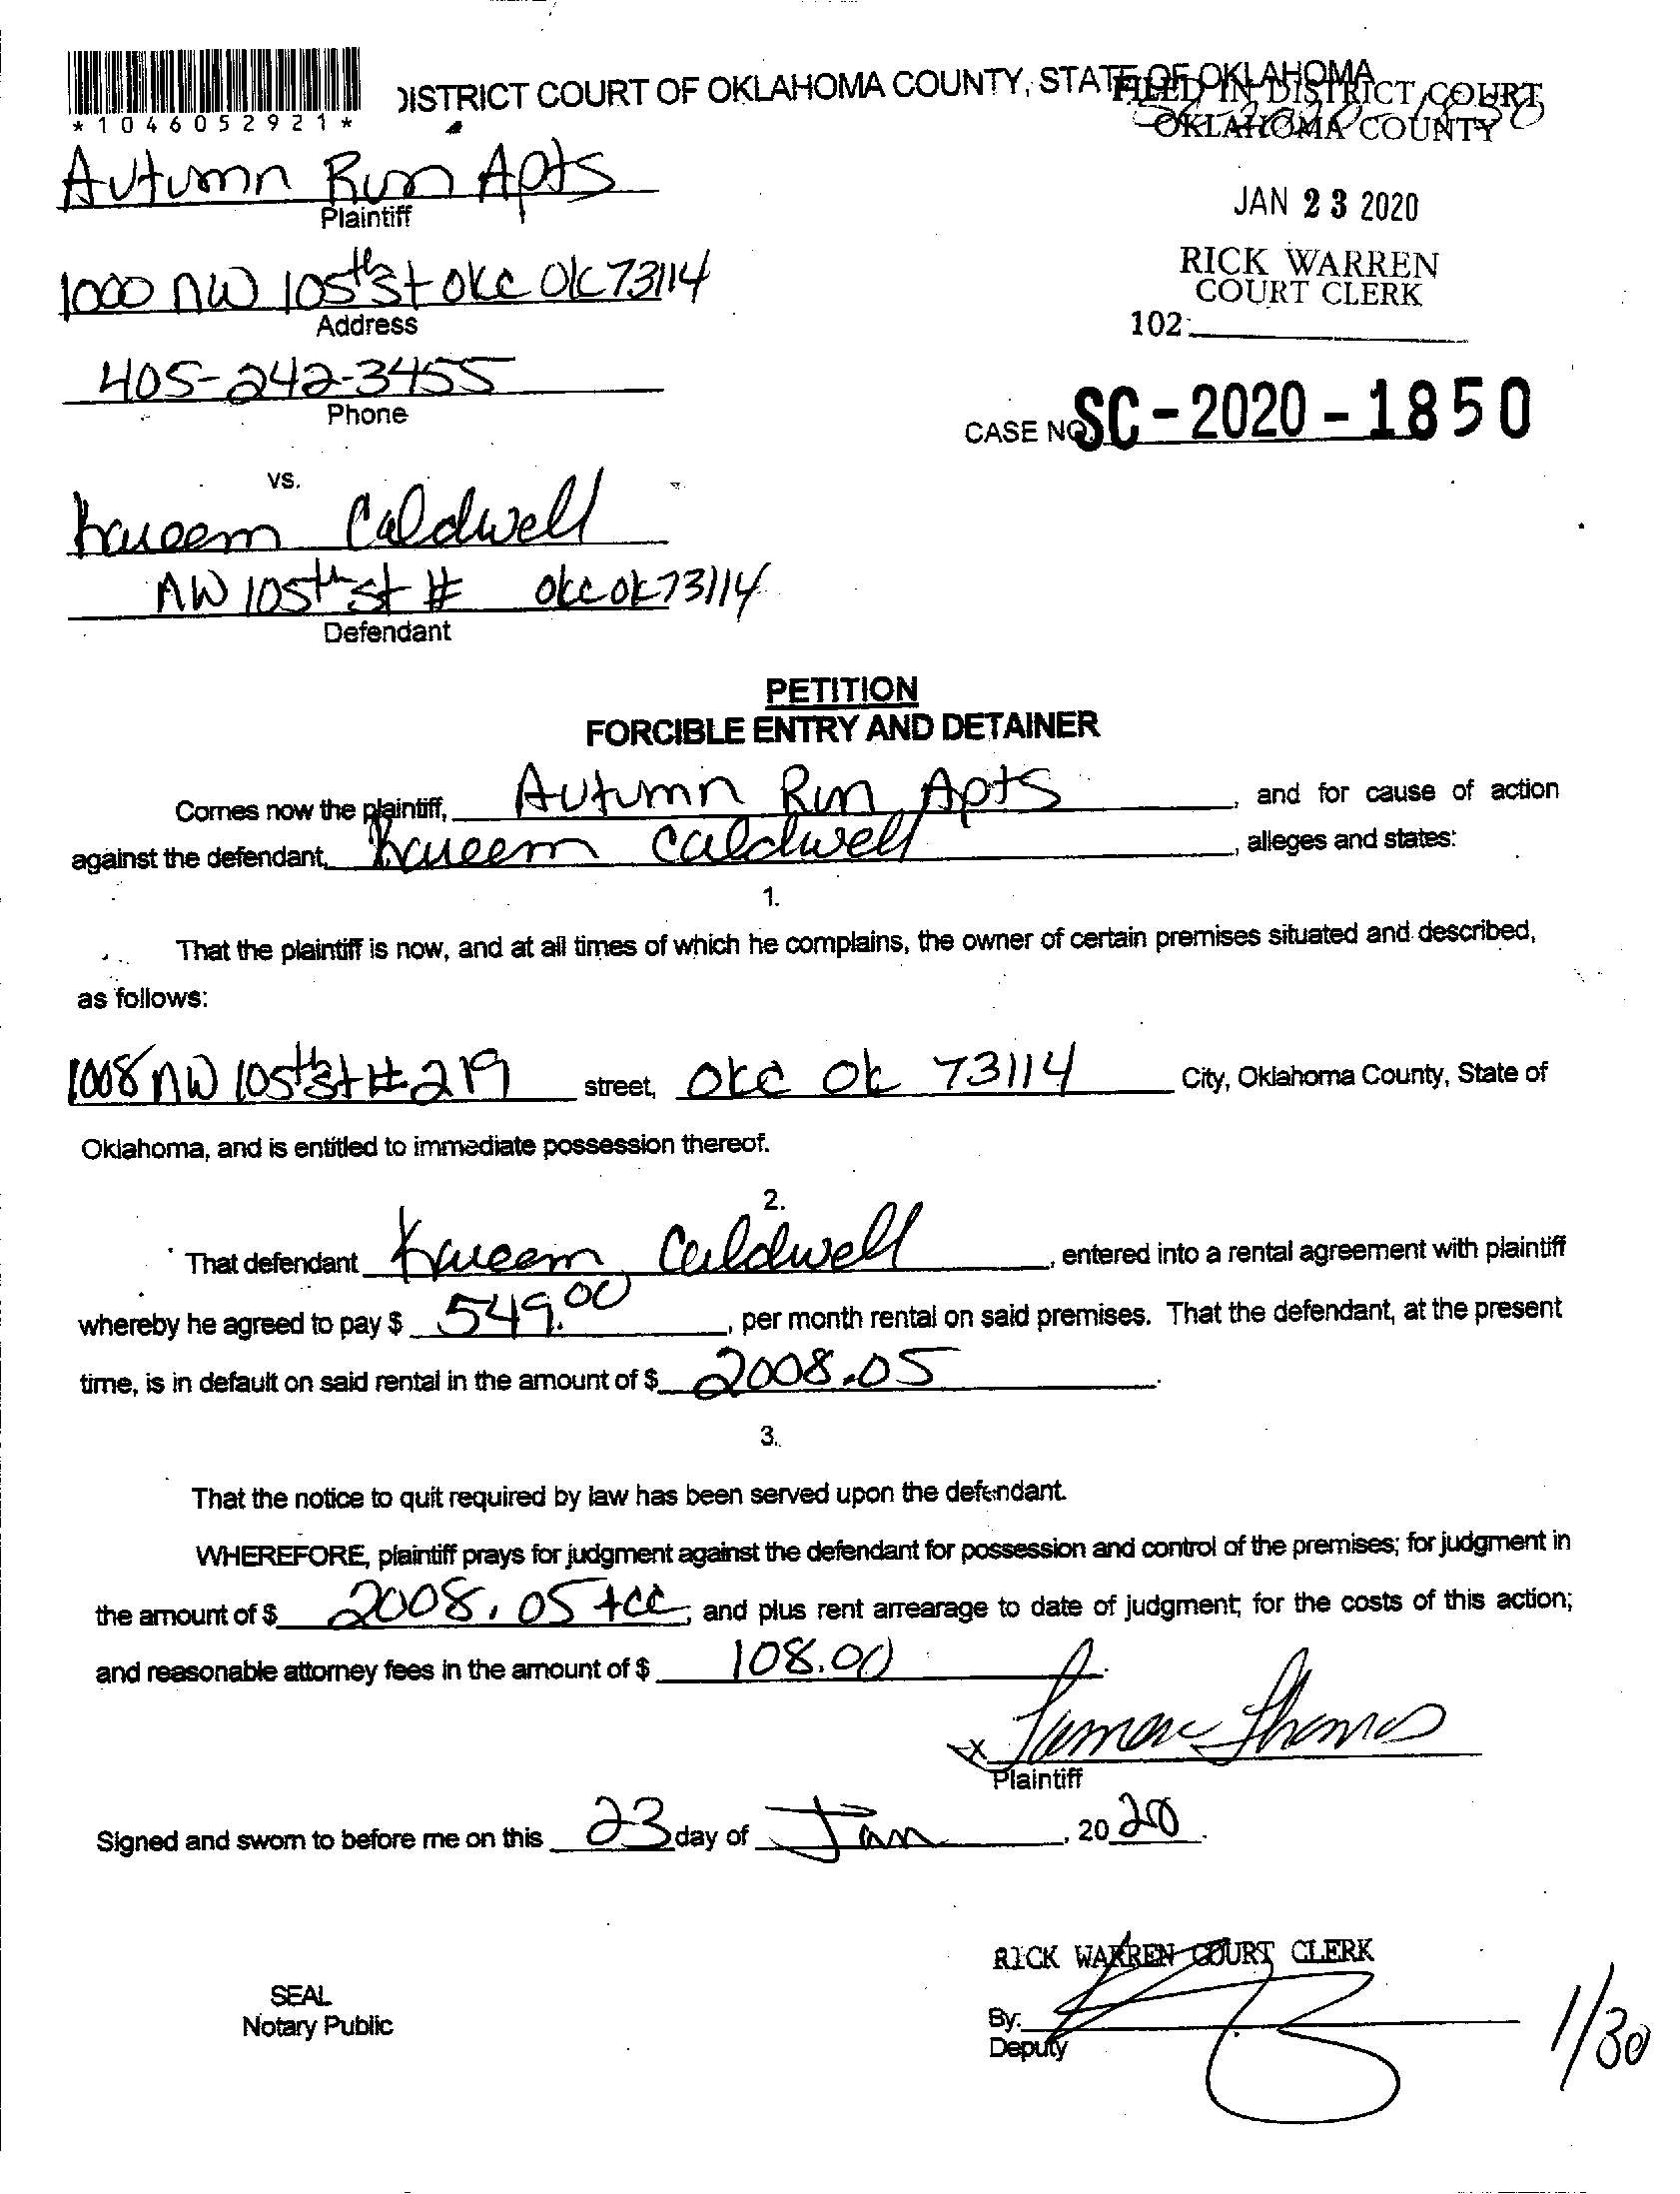 *1046052921*
DISTRICT COURT OF OKLAHOMA COUNTY, STATE OF OKLAHOMA
FILED IN DISTRICT COURT
OKLAHOMA COUNTY
Autumn Run Apts
Plaintiff
JAN 23 2020
1000 NW 105th St OKC OK 73114
Address
RICK WARREN
COURT CLERK
102
405-242-3455
Phone
CASE NO. SC-2020-1850
vs.
Kareem Caldwell
NW 105th St # OKC OK 73114
Defendant
PETITION
FORCIBLE ENTRY AND DETAINER
Comes now the plaintiff, Autumn Run Apts, and for cause of action
against the defendant, Kareem Caldwell, alleges and states:
1.
That the plaintiff is now, and at all times of which he complains, the owner of certain premises situated and described,
as follows:
1008 NW 105th St # 219 street, OKC OK 73114 City, Oklahoma County, State of
Oklahoma, and is entitled to immediate possession thereof.
2.
That defendant Kareem Caldwell, entered into a rental agreement with plaintiff
whereby he agreed to pay $ 549.00, per month rental on said premises. That the defendant, at the present
time, is in default on said rental in the amount of $ 2008.05.
3.
That the notice to quit required by law has been served upon the defendant.
WHEREFORE, plaintiff prays for judgment against the defendant for possession and control of the premises; for judgment in
the amount of $ 2008.05 +cc, and plus rent arrearage to date of judgment; for the costs of this action;
and reasonable attorney fees in the amount of $ 108.00
x
Plaintiff
Signed and sworn to before me on this 23 day of Jan, 2020.
RICK WARREN COURT CLERK
SEAL
Notary Public
By:
Deputy
1/30